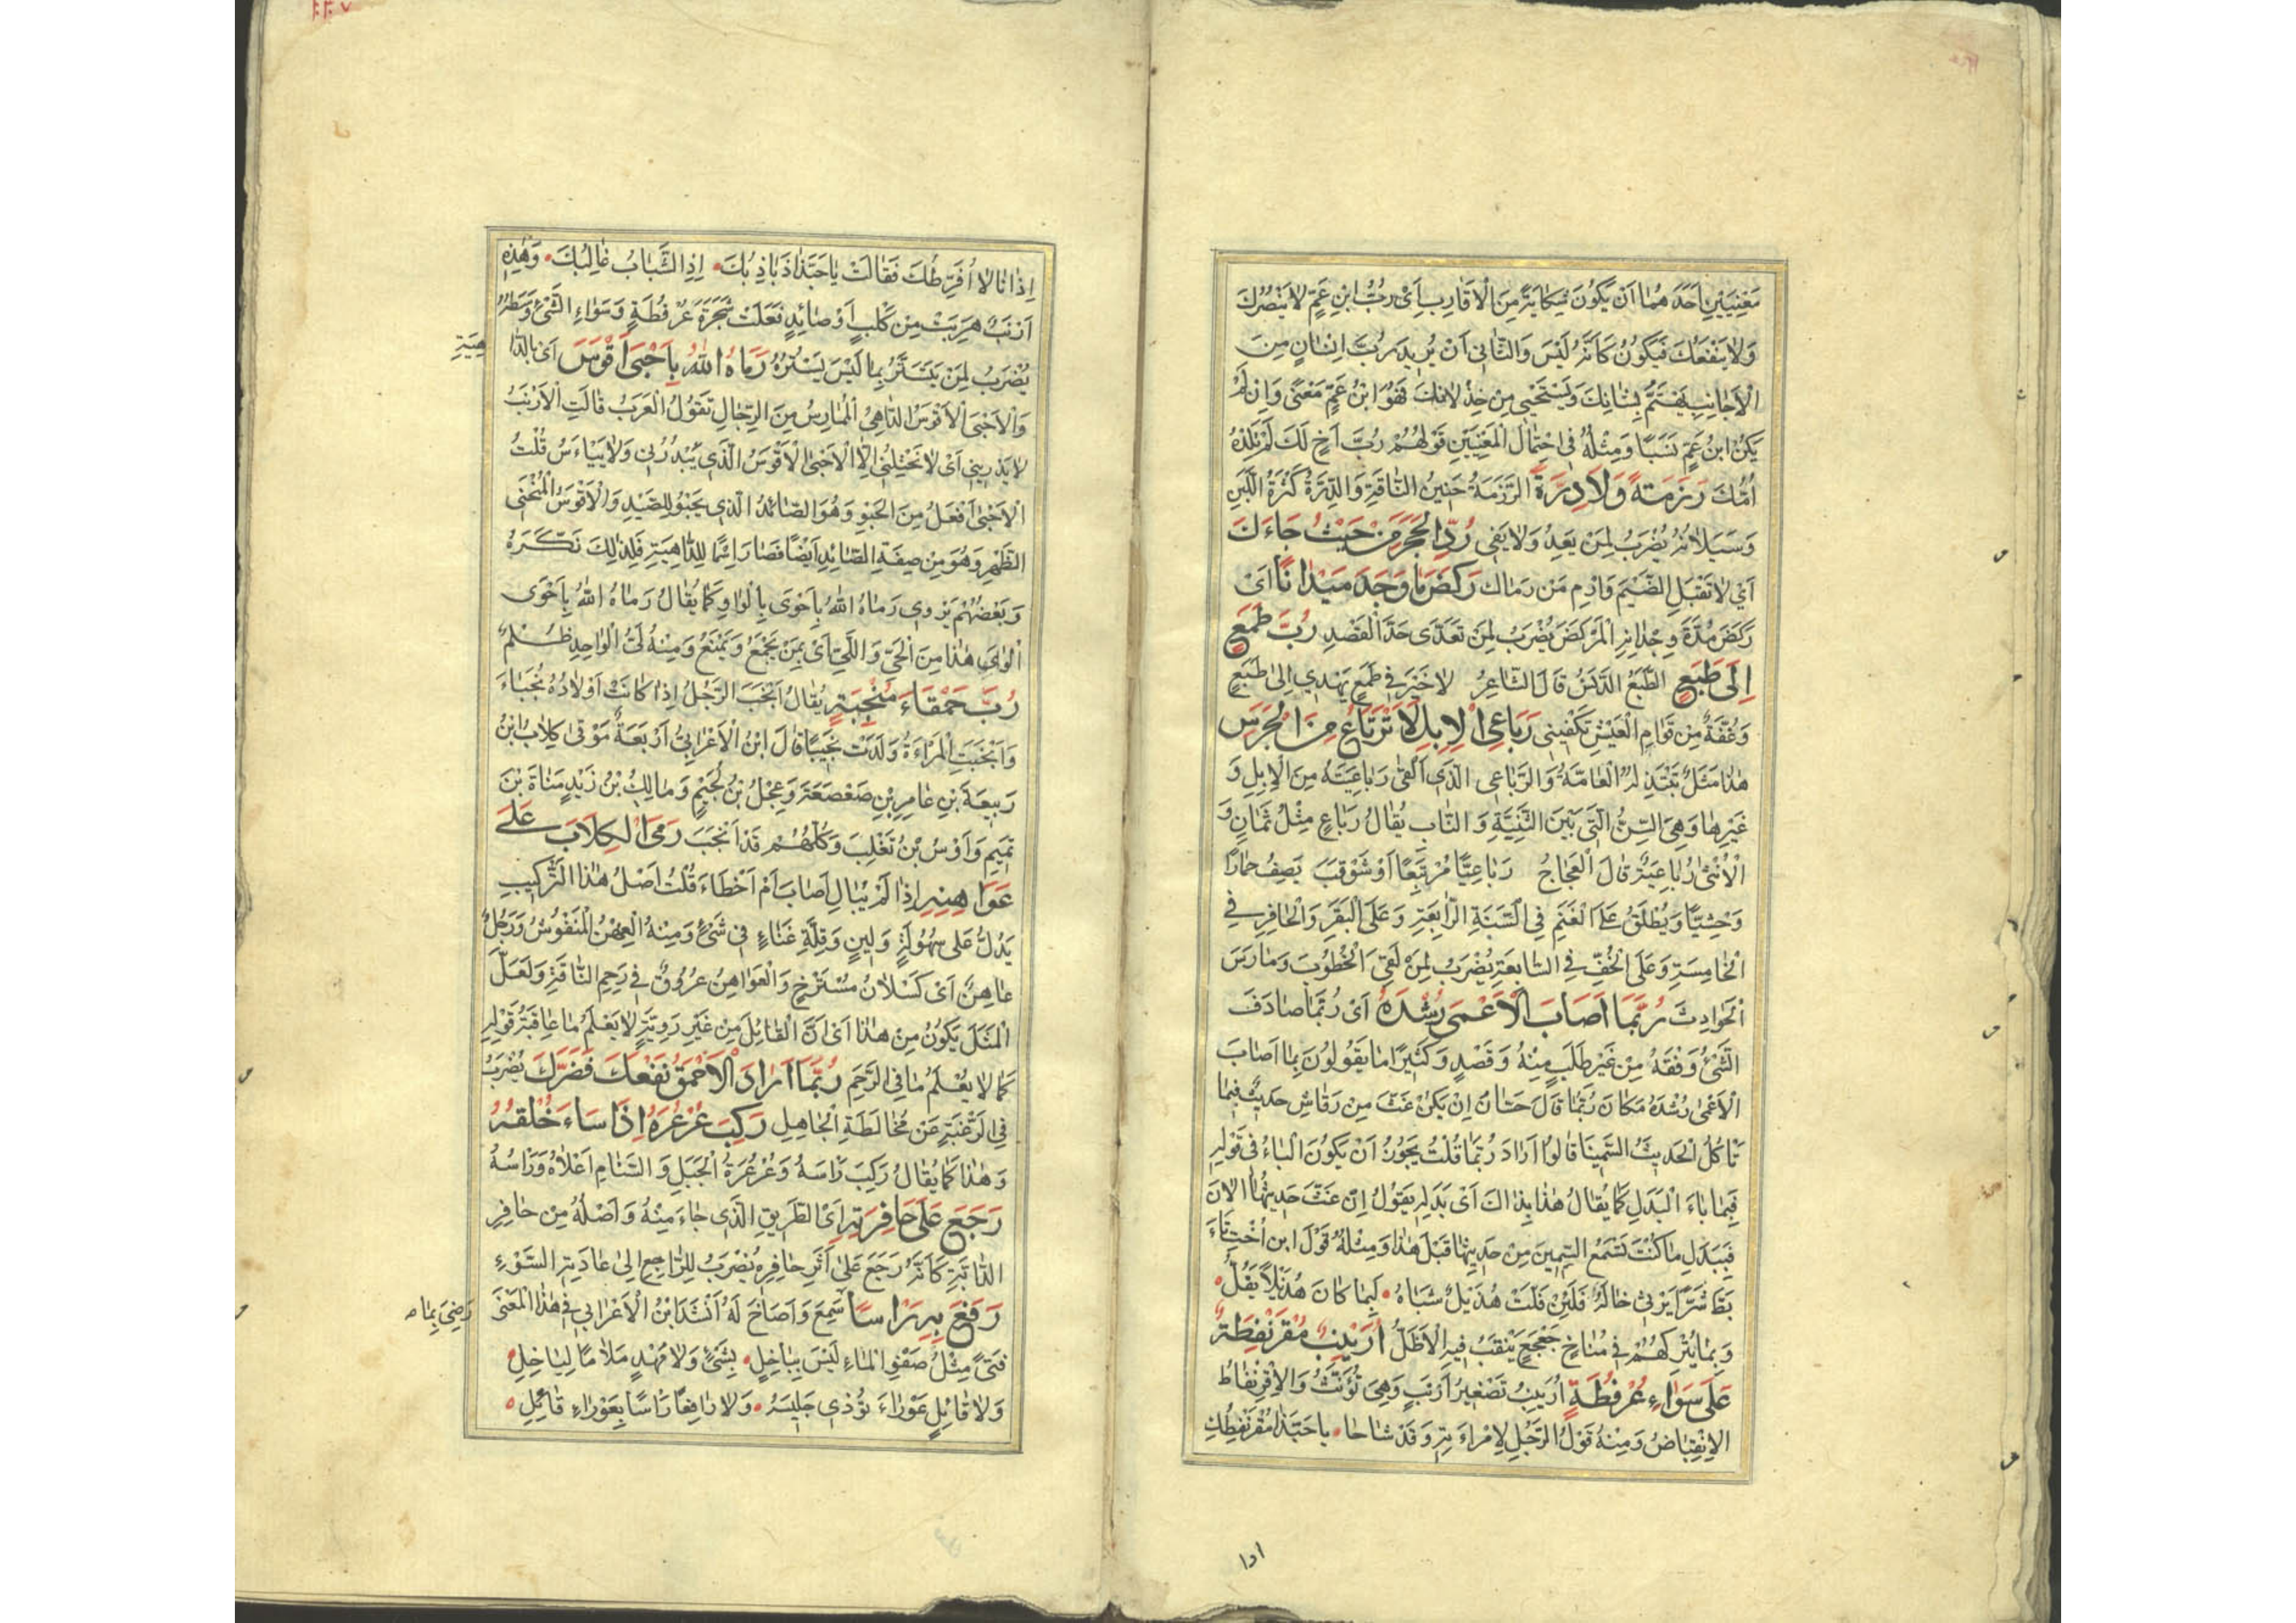 مَعْنَيَيْنِ اَحَدُهُمَا اَنْ يَكُونَ شِكَايَةً مِنَ الْاَقَارِبِ اَىْ رُبَّ ابْنِ عَمٍّ لَا يَنْصُرُكَ
وَلَا يَنْفَعُكَ فَيَكُونُ كَاَنَّهُ لَيْسَ وَالثَّانِى اَنْ يُرِيدَ رُبَّ اِنْسَانٍ مِنَ
الْاَجَانِبِ يَهْتَمُّ بِشَانِكَ وَيَسْتَحْيِى مِنْ خِذْلَانِكَ فَهُوَ ابْنُ عَمٍّ مَعْنًى وَاِنْ لَمْ
يَكُنْ ابْنُ عَمٍّ نَسَبًا وَمِثْلُهُ فِى احْتِمَالِ الْمَعْنَيَيْنِ قَوْلُهُمْ رُبَّ اَخٍ لَكَ لَمْ تَلِدْهُ
اُمُّكَ رَزَمَةً وَلَا دِرَّةَ الرَّزَمَةُ حَنِينُ النَّاقَةِ وَالدِّرَّةُ كَثْرَةُ اللَّبَنِ
وَسَيَلَانُهُ يُضْرَبُ لِمَنْ يَعِدُ وَلَا يَفِى رُدَّ الْحَجَرَ مِنْ حَيْثُ جَاءَكَ
اَىْ لَا تَقْبَلِ الضَّيْمَ وَارْمِ مَنْ رَمَاكَ رَكَضَ مَا وَجَدَ مَيْدَانًا اَىْ
رَكَضَ مُدَّةَ وِجْدَانِهِ الْمَرْكَضَ يُضْرَبُ لِمَنْ تَعَدَّى حَدَّ الْقَصْدِ رُبَّ طَمَعٍ
اِلَى طَبَعٍ الطَّبَعُ الدَّنَسُ قَالَ الشَّاعِرُ لَا خَيْرَ فِى طَمَعٍ يَهْدِى اِلَى طَبَعٍ
وَغُفَّةٌ مِنْ قَوَامِ الْعَيْشِ تَكْفِينِى رَبَاعِى الْاِبِلِ لَا تَرْتَاعُ مِنَ الْجَرَسِ
هٰذَا مَثَلٌ تَبْتَذِلُهُ الْعَامَّةُ وَالرَّبَاعِى الَّذِى اَلْقَى رَبَاعِيَتَهُ مِنَ الْاِبِلِ وَ
غَيْرِهَا وَهِىَ السِّنُّ الَّتِى بَيْنَ الثَّنِيَّةِ وَالنَّابِ يُقَالُ رَبَاعٍ مِثْلُ ثَمَانٍ وَ
الْاُنْثَى رَبَاعِيَةٌ قَالَ الْعَجَّاجُ رَبَاعِيًا مُرْتَبِعًا اَوْ شَوْقَبَ يَصِفُ حِمَارًا
وَحْشِيًّا وَيُطْلَقُ عَلَى الْغَنَمِ فِى السَّنَةِ الرَّابِعَةِ وَعَلَى الْبَقَرِ وَالْحَافِرِ فِى
الْخَامِسَةِ وَعَلَى الْخُفِّ فِى السَّابِعَةِ يُضْرَبُ لِمَنْ لَقِىَ الْخُطُوبَ وَمَارَسَ
الْحَوَادِثَ رُبَّمَا اَصَابَ الْاَعْمَى رُشْدَهُ اَىْ رُبَّمَا صَادَفَ
الشَّىْءُ وَفْقَهُ مِنْ غَيْرِ طَلَبٍ مِنْهُ وَقَصْدٍ وَكَثِيرًا مَا يَقُولُونَ بِمَا اَصَابَ
الْاَعْمَى رُشْدَهُ مَكَانَ رُبَّمَا قَالَ حَسَّانُ اِنْ يَكُنْ غَثَّ مِنْ رَقَاشِ حَدِيثٌ فَبِمَا
تَاْكُلُ الْحَدِيثَ السَّمِينَا قَالُوا اَرَادَ رُبَّمَا قُلْتُ يَجُوزُ اَنْ يَكُونَ الْبَاءُ فِى قَوْلِهِ
فَبِمَا بَاءَ الْبَدَلِ كَمَا يُقَالُ هٰذَا بِذَاكَ اَىْ بَدَلِهِ يَقُولُ اِنْ غَثَّ حَدِيثُهَا الْاٰنَ
فَبِبَدَلِ مَا كُنْتَ تَسْمَعُ السَّمِينَ مِنْ حَدِيثِهَا قَبْلَ هٰذَا وَمِثْلُهُ قَوْلُ ابْنِ اُخْتِ تَاَ
بَّطَ شَرًّا يَرْثِى خَالَهُ فَلَئِنْ فَلَّتْ هُذَيْلٌ شَبَاهُ لَبِمَا كَانَ هُذَيْلًا يَفُلُّ
وَبِمَا يَتْرُكُهُمْ فِى مُنَاخٍ جَعْجَعٍ يَنْقَبُ فِيهِ الْاَظَلُّ اُرَيْنِبٌ مُقْرَنْفِطَةٌ
عَلَى سَوَاءِ عُرْفُطَةٍ اُرَيْنِبٌ تَصْغِيرُ اَرْنَبٍ وَهِىَ تُؤَنَّثُ وَالْاِقْرِنْفَاطُ
الْاِنْقِبَاضُ وَمِنْهُ قَوْلُ الرَّجُلِ لِامْرَاَتِهِ وَقَدْ شَاخَا يَا حَبَّذَا مُقْرَنْفِطُكِ
اِذَا
اِذْ اَنَا لَا اُفَرِّطُكَ فَقَالَتْ يَا حَبَّذَا ذَبَاذِبُكَ اِذِ الشَّبَابُ غَالِبُكَ وَهٰذِهِ
اَرْنَبٌ هَرَبَتْ مِنْ كَلْبٍ اَوْ صَائِدٍ فَعَلَتْ شَجَرَةَ عُرْفُطَةٍ وَسَوَاءُ الشَّىْءِ وَسَطُهُ
يُضْرَبُ لِمَنْ يَتَسَتَّرُ بِمَا لَيْسَ يَسْتُرُهُ رَمَاهُ اللّٰهُ بِاَحْبَى اَقْوَسَ اَىْ بِالدَّا
هِيَةِ
وَالْاَحْبَى الْاَقْوَسُ الدَّاهِى الْمُمَارِسُ مِنَ الرِّجَالِ تَقُولُ الْعَرَبُ قَالَتِ الْاَرْنَبُ
لَا يَدَّرِينِى اَىْ لَا يَخْتِلُنِى اِلَّا الْاَحْبَى الْاَقْوَسُ الَّذِى يَبْدُرُنِى وَلَا يَيْاَسُ قُلْتُ
الْاَحْبَى اَفْعَلُ مِنَ الْحَبْوِ وَهُوَ الصَّائِدُ الَّذِى يَحْبُو لِلصَّيْدِ وَالْاَقْوَسُ الْمُنْحَنِى
الظَّهْرِ وَهُوَ مِنْ صِفَةِ الصَّائِدِ اَيْضًا فَصَارَ اِسْمًا لِلدَّاهِيَةِ فَلِذٰلِكَ نَكَّرَهُ
وَبَعْضُهُمْ يَرْوِى رَمَاهُ اللّٰهُ بِاَحْوَى بِالْوَاوِ كَمَا يُقَالُ رَمَاهُ اللّٰهُ بِاَحْوَى
اَلْوَى هٰذَا مِنَ الْحَىِّ وَاللَّىِّ اَىْ بِمَنْ يَجْمَعُ وَيَمْنَعُ وَمِنْهُ لَىُّ الْوَاجِدِ ظُلْمٌ
رُبَّ حَمْقَاءَ مُنْجِبَةٍ يُقَالُ اَنْجَبَ الرَّجُلُ اِذَا كَانَتْ اَوْلَادُهُ نُجَبَاءَ
وَاَنْجَبَتِ الْمَرْاَةُ وَلَدَتْ نَجِيبًا قَالَ ابْنُ الْاَعْرَابِىِّ اَرْبَعَةٌ مَوْقَى كِلَابُ ابْنُ
رَبِيعَةَ بْنِ عَامِرِ بْنِ صَعْصَعَةَ وَعِجْلُ بْنُ لُجَيْمٍ وَمَالِكُ بْنُ زَيْدِ مَنَاةَ بْنَ
تَمِيمٍ وَاَوْسُ بْنُ تَغْلِبَ وَكُلُّهُمْ قَدْ اَنْجَبَ رَمَى الْكِلَابَ عَلَى
عَوَاهِنِهِ اِذَا لَمْ يُبَالِ اَصَابَ اَمْ اَخْطَاءَ قُلْتُ اَصْلُ هٰذَا التَّرْكِيبِ
يَدُلُّ عَلَى سُهُولَةٍ وَلِينٍ وَقِلَّةِ غَنَاءٍ فِى شَىْءٍ وَمِنْهُ الْعِهْنُ الْمَنْفُوشُ وَرَجُلٌ
عَاهِنٌ اَىْ كَسْلَانُ مُسْتَرْخٍ وَالْعَوَاهِنُ عُرُوقٌ فِى رَحِمِ النَّاقَةِ وَلَعَلَّ
الْمَثَلَ يَكُونُ مِنْ هٰذَا اَىْ اَنَّ الْقَائِلَ مِنْ غَيْرِ رَوِيَّةٍ لَا يَعْلَمُ مَا عَاقِبَةُ قَوْلِهِ
كَمَا لَا يُعْلَمُ مَا فِى الرَّحِمِ رُبَّمَا اَرَادَ الْاَحْمَقُ نَفْعَكَ فَضَرَّكَ يُضْرَبُ
فِى الرَّغْبَةِ عَنْ مُخَالَطَةِ الْجَاهِلِ رَكِبَ عُرْعُرَهُ اِذَا سَاءَ خُلْقُهُ
وَهٰذَا كَمَا يُقَالُ رَكِبَ رَاْسَهُ وَعُرْعُرَةُ الْجَبَلِ وَالسَّنَامِ اَعْلَاهُ وَرَاْسُهُ
رَجَعَ عَلَى حَافِرَتِهِ اَىِ الطَّرِيقِ الَّذِى جَاءَ مِنْهُ وَاَصْلُهُ مِنْ حَافِرِ
الدَّابَّةِ كَاَنَّهُ رَجَعَ عَلَى اَثَرِ حَافِرِهِ يُضْرَبُ لِلرَّاجِعِ اِلَى عَادَتِهِ السَّوْءِ
رَفَعَ بِهِ رَاْسًا سَمِعَ وَاَصَاخَ لَهُ اَنْشَدَ ابْنُ الْاَعْرَابِى فِى هٰذَا الْمَعْنَى
رَضِىَ بِمَا
فَتًى مِثْلُ صَفْوِ الْمَاءِ لَيْسَ بِبَاخِلٍ بِشَىْءٍ وَلَا مُهْدٍ مَلَامًا لِبَاخِلِ
وَلَا قَائِلٍ عَوْرَاءَ تُؤْذِى جَلِيسَهُ وَلَا رَافِعًا رَاْسًا بِعَوْرَاءِ قَائِلِ